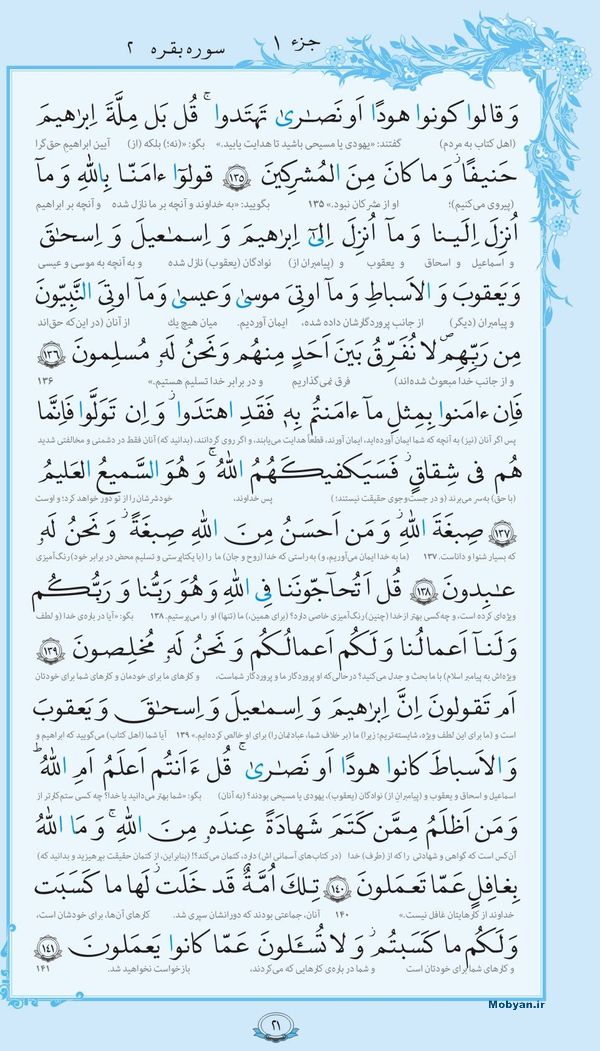 جزء ۱
سوره بقره ۲
وَ قالوا کونوا هودًا اَو نَصـٰریٰ تَهتَدوا ۗ قُل بَل مِلَّةَ اِبرٰهیمَ
(اهل کتاب به مردم) گفتند: «یهودی یا مسیحی باشید تا هدایت یابید.» بگو: «(نه؛) بلکه (از) آیین ابراهیمِ حق‌گرا
حَنیفًا ۖ وَ ما کانَ مِنَ المُشرِکینَ ﴿۱۳۵﴾ قولوٓا ءامَنّا بِاللهِ وَ مآ
(پیروی می‌کنیم)؛ او از مشرکان نبود.» ۱۳۵ بگویید: «به خداوند و آنچه بر ما نازل شده و آنچه بر ابراهیم
اُنزِلَ اِلَینا وَ مآ اُنزِلَ اِلیٰٓ اِبرٰهیمَ وَ اِسمـٰعیلَ وَ اِسحـٰقَ
و اسماعیل و اسحاق و یعقوب و (پیامبران از) نوادگان (یعقوب) نازل شده و به آنچه به موسی و عیسی
وَ یَعقوبَ وَ الاَسباطِ وَ مآ اوتِیَ موسیٰ وَ عیسیٰ وَ مآ اوتِیَ النَّبِیّونَ
و پیامبران (دیگر) از جانب پروردگارشان داده شده، ایمان آوردیم. میان هیچ یك از آنان (در این‌که حق‌اند
مِن رَبِّهِم لا نُفَرِّقُ بَینَ اَحَدٍ مِنهُم وَ نَحنُ لَهُ مُسلِمونَ ﴿۱۳۶﴾
و از جانب خدا مبعوث شده‌اند) فرق نمی‌گذاریم و در برابر خدا تسلیم هستیم.» ۱۳۶
فَاِن ءامَنوا بِمِثلِ مآ ءامَنتُم بِهِ فَقَدِ اهتَدَوا ۖ وَ اِن تَوَلَّوا فَاِنَّما
پس اگر آنان (نیز) به آنچه که شما ایمان آورده‌اید، ایمان آورند، قطعاً هدایت می‌یابند، و اگر روی گردانند، (بدانید که) آنان فقط در دشمنی و مخالفتی شدید
هُم فی شِقاقٍ ۖ فَسَیَکفیکَهُمُ اللهُ ۚ وَ هُوَ السَّمیعُ العَلیمُ
(با حق) به‌سر می‌برند (و در جست‌وجوی حقیقت نیستند؛) پس خداوند، خود شرشان را از تو دور خواهد کرد؛ و اوست
﴿۱۳۷﴾ صِبغَةَ اللهِ ۖ وَ مَن اَحسَنُ مِنَ اللهِ صِبغَةً ۖ وَ نَحنُ لَهُ
که بسیار شنوا و داناست. ۱۳۷ (ما به خدا ایمان می‌آوریم، و) به راستی که خدا (روح و جان) ما را (با یکتاپرستی و تسلیم محض در برابر خود) رنگ‌آمیزی
عـٰبِدونَ ﴿۱۳۸﴾ قُل اَتُحآجّونَنا فِی اللهِ وَ هُوَ رَبُّنا وَ رَبُّکُم
ویژه‌ای کرده است، و چه‌کسی بهتر از خدا (چنین) رنگ‌آمیزی خاصی دارد؟ (برای همین،) ما (تنها) او را می‌پرستیم. ۱۳۸ بگو: «آیا در باره‌ی خدا (و لطف
وَ لَنآ اَعمالُنا وَ لَکُم اَعمالُکُم وَ نَحنُ لَهُ مُخلِصونَ ﴿۱۳۹﴾
ویژه‌اش به پیامبر اسلام) با ما بحث و جدل می‌کنید؟ در حالی‌که او پروردگار ما و پروردگار شماست، و کارهای ما برای خودمان و کارهای شما برای خودتان
اَم تَقولونَ اِنَّ اِبرٰهیمَ وَ اِسمـٰعیلَ وَ اِسحـٰقَ وَ یَعقوبَ
است و (ما برای این لطف ویژه، شایسته‌تریم؛ زیرا) ما (بر خلاف شما، عبادتمان را) برای او خالص کرده‌ایم.» ۱۳۹ آیا شما (اهل کتاب) می‌گویید که ابراهیم و
وَ الاَسباطَ کانوا هودًا اَو نَصـٰریٰ ۗ قُل ءَاَنتُم اَعلَمُ اَمِ اللهُ ۗ
اسماعیل و اسحاق و یعقوب و (پیامبرانِ از) نوادگان (یعقوب)، یهودی یا مسیحی بودند؟ (به آنان) بگو: «شما بهتر می‌دانید یا خدا؟ چه کسی ستم‌کارتر از
وَ مَن اَظلَمُ مِمَّن کَتَمَ شَهادَةً عِندَهُ مِنَ اللهِ ۗ وَ مَا اللهُ
آن‌کس است که گواهی و شهادتی را که از (طرف) خدا (در کتاب‌های آسمانی اش) دارد، کتمان می‌کند؟! (بنابراین، از کتمان حقیقت بپرهیزید و بدانید که)
بِغافِلٍ عَمّا تَعمَلونَ ﴿۱۴۰﴾ تِلكَ اُمَّةٌ قَد خَلَت ۖ لَها ما کَسَبَت
خداوند از کارهایتان غافل نیست.» ۱۴۰ آنان، جماعتی بودند که دورانشان سپری شد. کارهای آن‌ها، برای خودشان است،
وَ لَکُم ما کَسَبتُم ۖ وَ لا تُسـَٔلونَ عَمّا کانوا یَعمَلونَ ﴿۱۴۱﴾
و کارهای شما برای خودتان است و شما در باره‌ی کارهایی که می‌کردند، بازخواست نخواهید شد. ۱۴۱
Mobyan.ir
۲۱